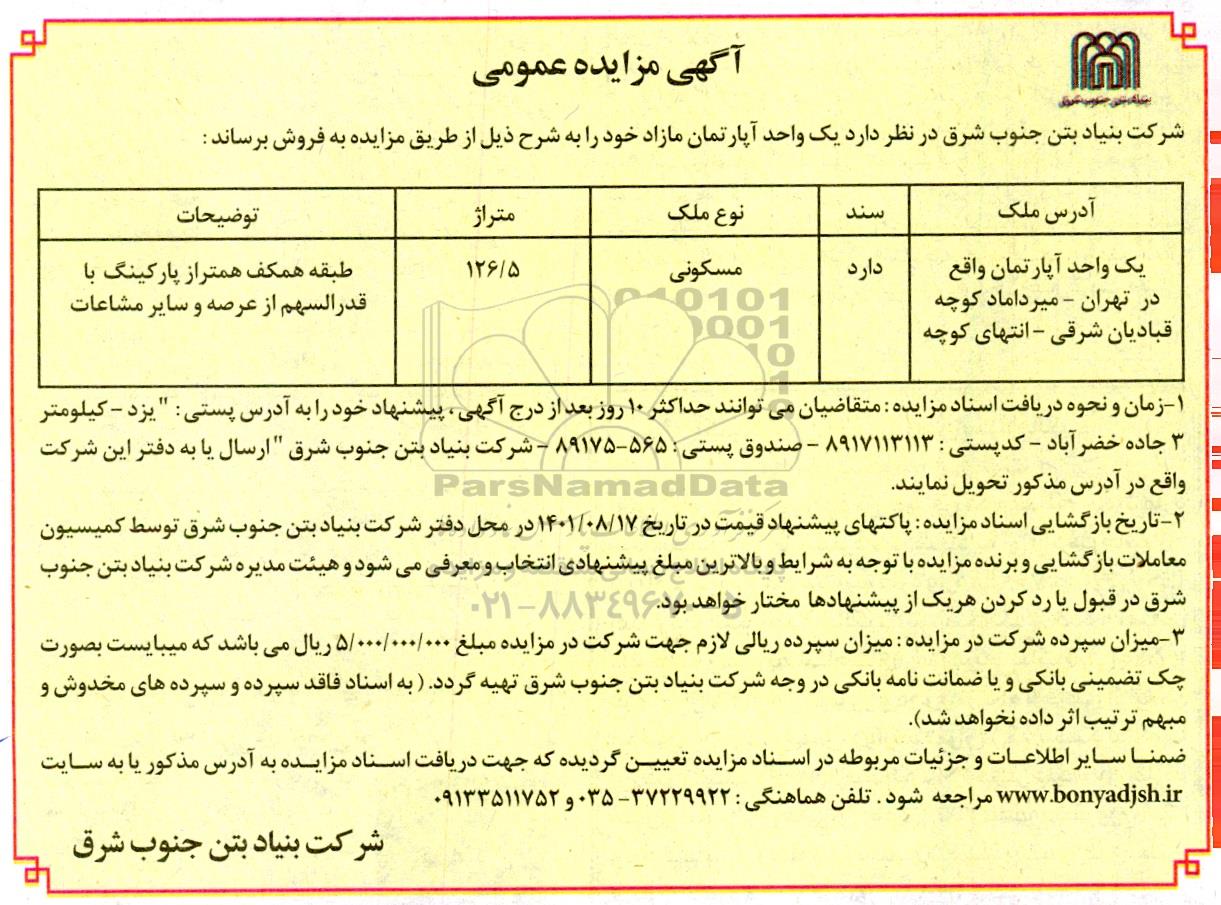 بنیاد بتن جنوب شرق
آگهی مزایده عمومی
شرکت بنیاد بتن جنوب شرق در نظر دارد یک واحد آپارتمان مازاد خود را به شرح ذیل از طریق مزایده به فروش برساند :
آدرس ملک	سند	نوع ملک	متراژ	توضیحات
یک واحد آپارتمان واقع	دارد	مسکونی	۱۲۶/۵	طبقه همکف همتراز پارکینگ با
در تهران - میرداماد کوچه	قدرالسهم از عرصه و سایر مشاعات
قبادیان شرقی - انتهای کوچه
۱-زمان و نحوه دریافت اسناد مزایده : متقاضیان می توانند حداکثر ۱۰ روز بعد از درج آگهی ، پیشنهاد خود را به آدرس پستی : "یزد - کیلومتر
۳ جاده خضرآباد - کدپستی : ۸۹۱۷۱۱۳۱۱۳ - صندوق پستی : ۵۶۵-۸۹۱۷۵ - شرکت بنیاد بتن جنوب شرق " ارسال یا به دفتر این شرکت
واقع در آدرس مذکور تحویل نمایند.
ParsNamadData
۲-تاریخ بازگشایی اسناد مزایده : پاکتهای پیشنهاد قیمت در تاریخ ۱۴۰۱/۰۸/۱۷ در محل دفتر شرکت بنیاد بتن جنوب شرق توسط کمیسیون
معاملات بازگشایی و برنده مزایده با توجه به شرایط و بالاترین مبلغ پیشنهادی انتخاب و معرفی می شود و هیئت مدیره شرکت بنیاد بتن جنوب
شرق در قبول یا رد کردن هریک از پیشنهادها مختار خواهد بود.
۳-میزان سپرده شرکت در مزایده : میزان سپرده ریالی لازم جهت شرکت در مزایده مبلغ ۵/۰۰۰/۰۰۰/۰۰۰ ریال می باشد که میبایست بصورت
چک تضمینی بانکی و یا ضمانت نامه بانکی در وجه شرکت بنیاد بتن جنوب شرق تهیه گردد. ( به اسناد فاقد سپرده و سپرده های مخدوش و
مبهم ترتیب اثر داده نخواهد شد).
ضمنا سایر اطلاعات و جزئیات مربوطه در اسناد مزایده تعیین گردیده که جهت دریافت اسناد مزایده به آدرس مذکور یا به سایت
www.bonyadjsh.ir مراجعه شود . تلفن هماهنگی : ۳۷۲۲۹۹۲۲-۰۳۵ و ۰۹۱۳۳۵۱۱۷۵۲
شرکت بنیاد بتن جنوب شرق